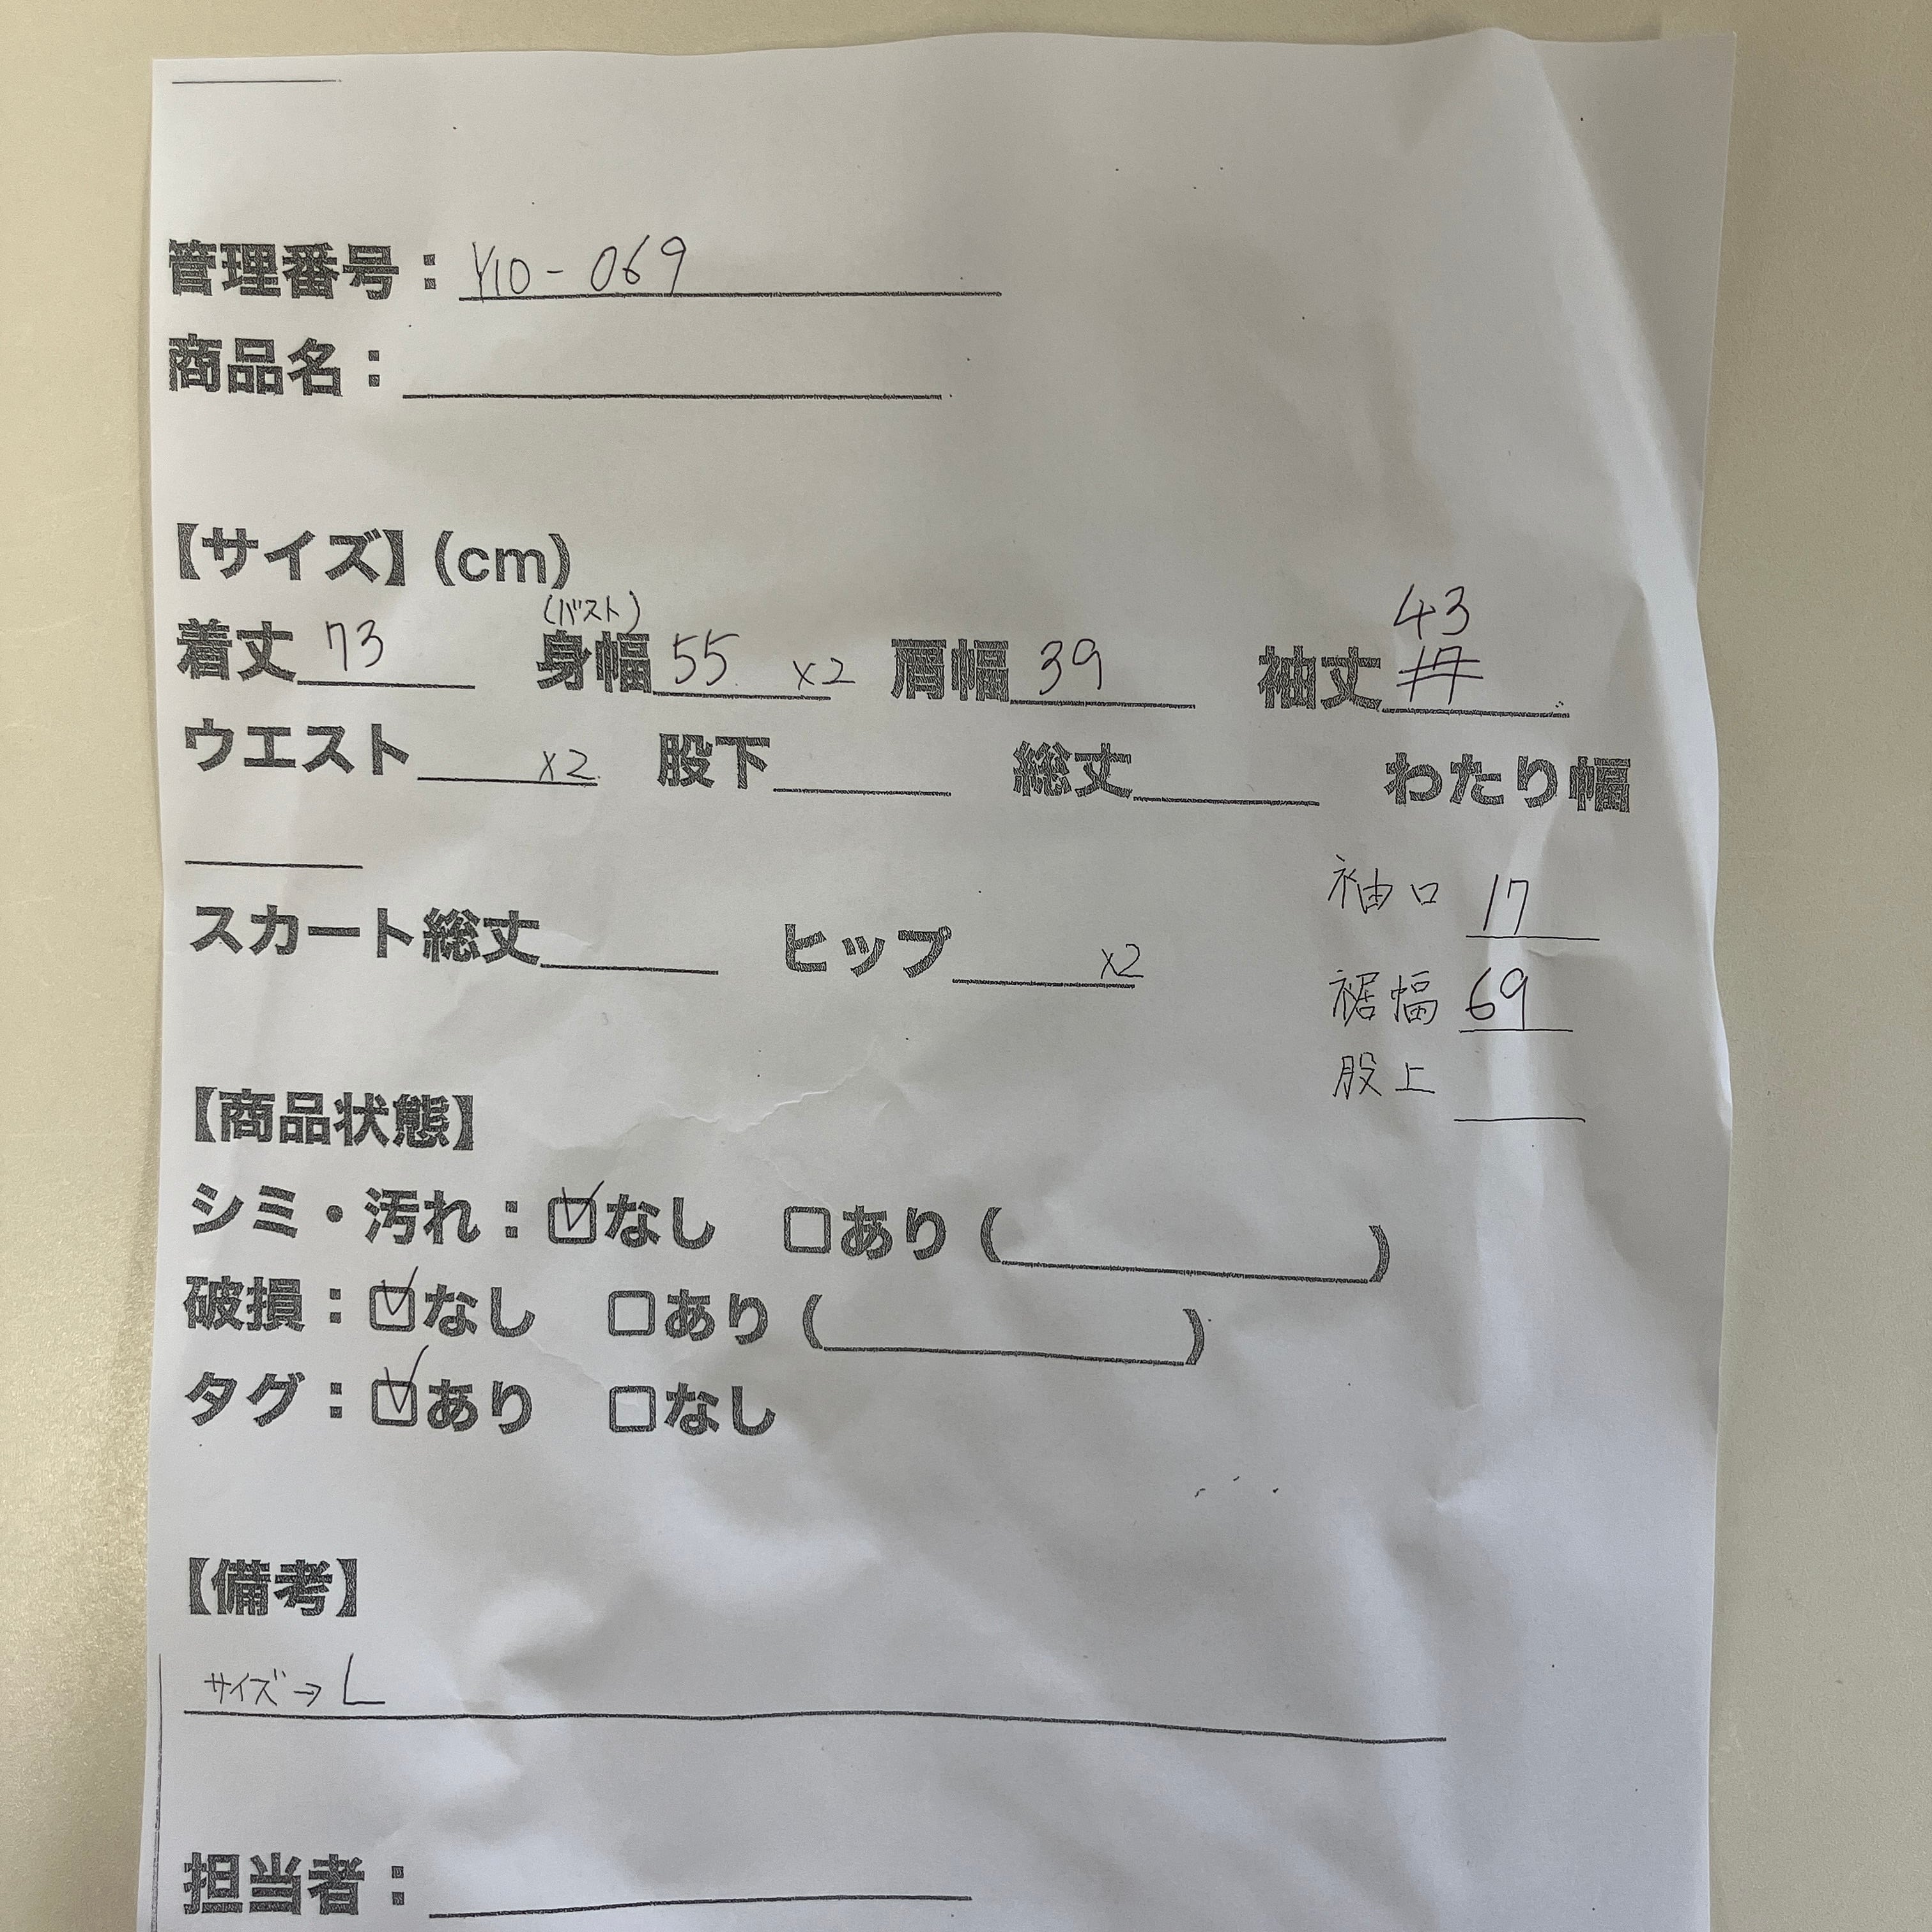 管理番号：Y10-069
商品名：
【サイズ】(cm)
(バスト)
43
着丈 73 身幅 55 x2 肩幅 39 袖丈 17
ウエスト x2 股下 総丈 わたり幅
袖口 17
スカート総丈 ヒップ x2
裾幅 69
股上
【商品状態】
シミ・汚れ：☑なし □あり ( )
破損：☑なし □あり ( )
タグ：☑あり □なし
【備考】
サイズ→L
担当者：